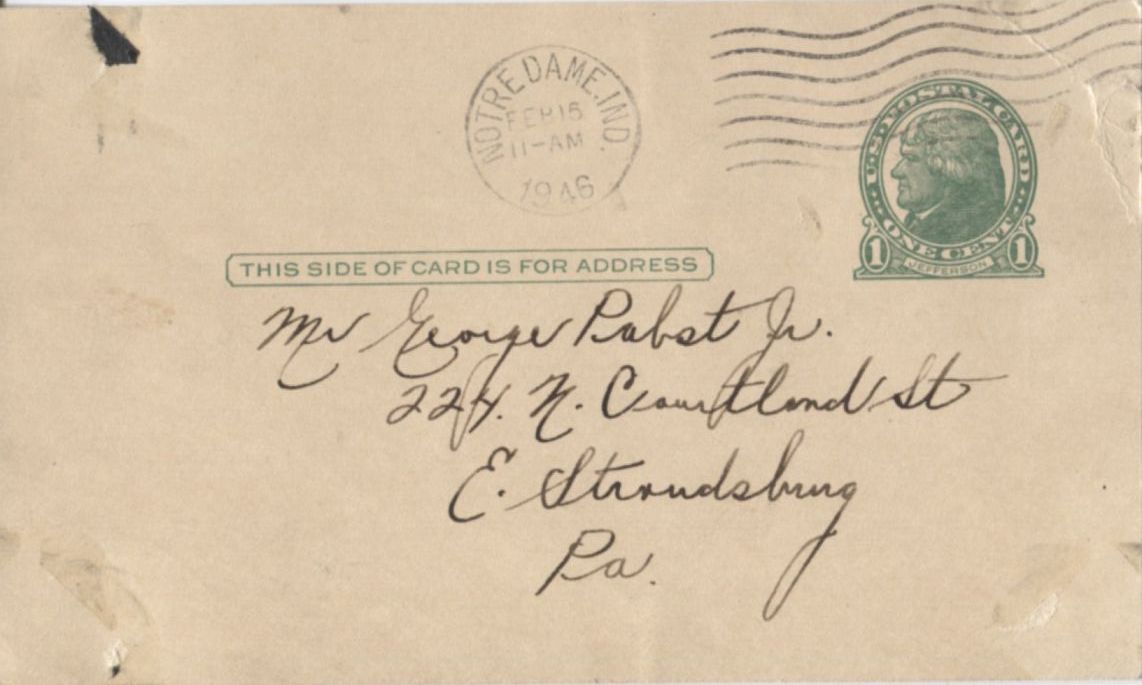 NOTRE DAME, IND.
FEB 15
11-AM
1946
U.S. POSTAL CARD
ONE CENT
1 JEFFERSON 1
THIS SIDE OF CARD IS FOR ADDRESS
Mr George Pabst Jr.
224. N. Courtland St
E. Stroudsburg
Pa.